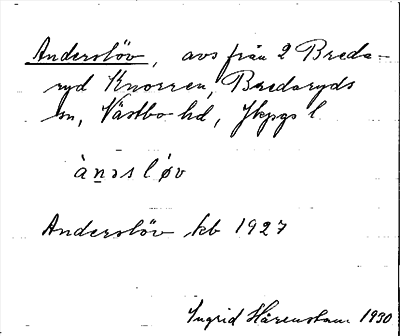 Anderslöv, avs från 2 Breda-
ryd Knorren, Bredaryds
sn, Västbo hd, Jkpgs l.
ànəslǿv
Anderslöv kb 1927
Ingrid Hårenstam 1930